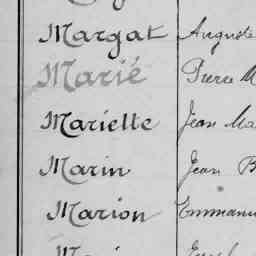 Margat Auguste
Marié Pierre M
Mariette Jean Ma
Marin Jean B
Marion Emmanu